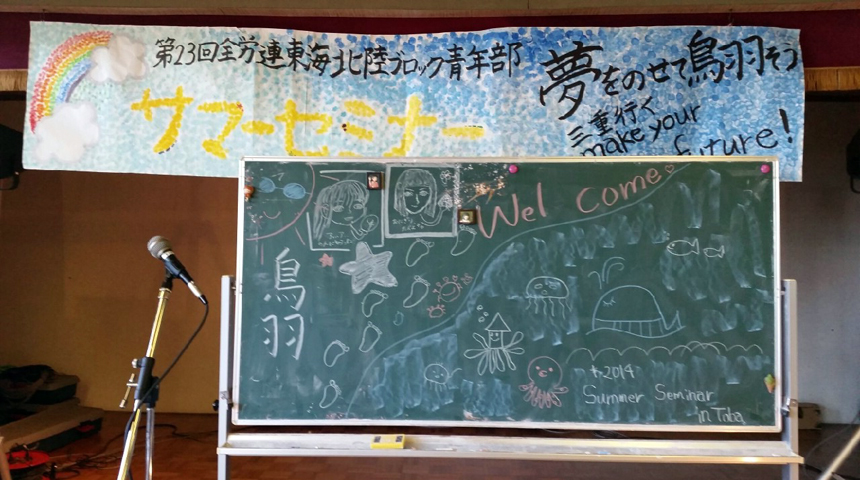 第23回全労連東海北陸ブロック青年部
サマーセミナー
夢をのせて鳥羽そう
三重行く
make your
future!
Wel come
鳥羽
2014
Summer Seminar
in Toba